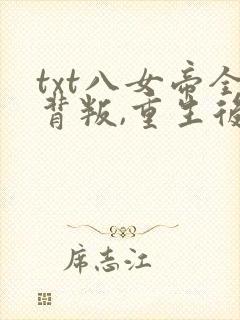 txt八女帝全
背叛,重生後
席志江